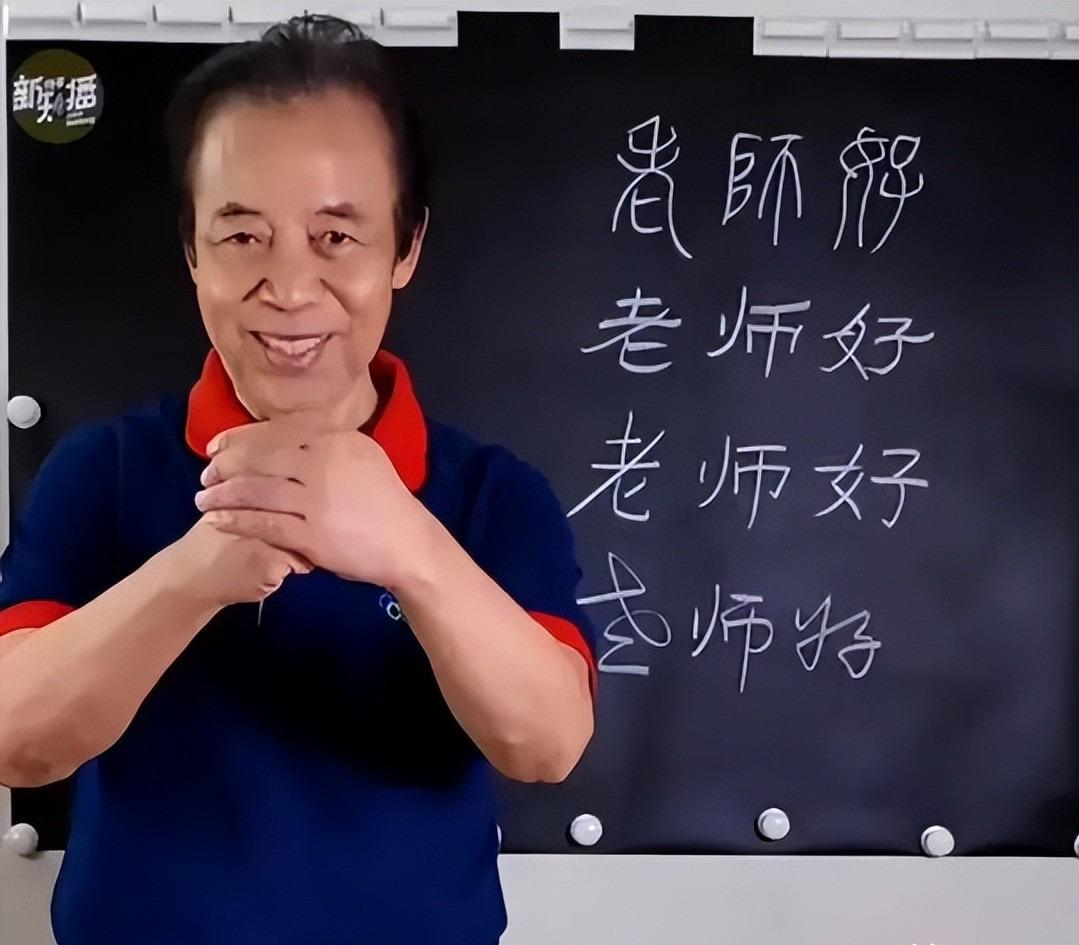 新知播
老師好
老师好
老师好
老师好